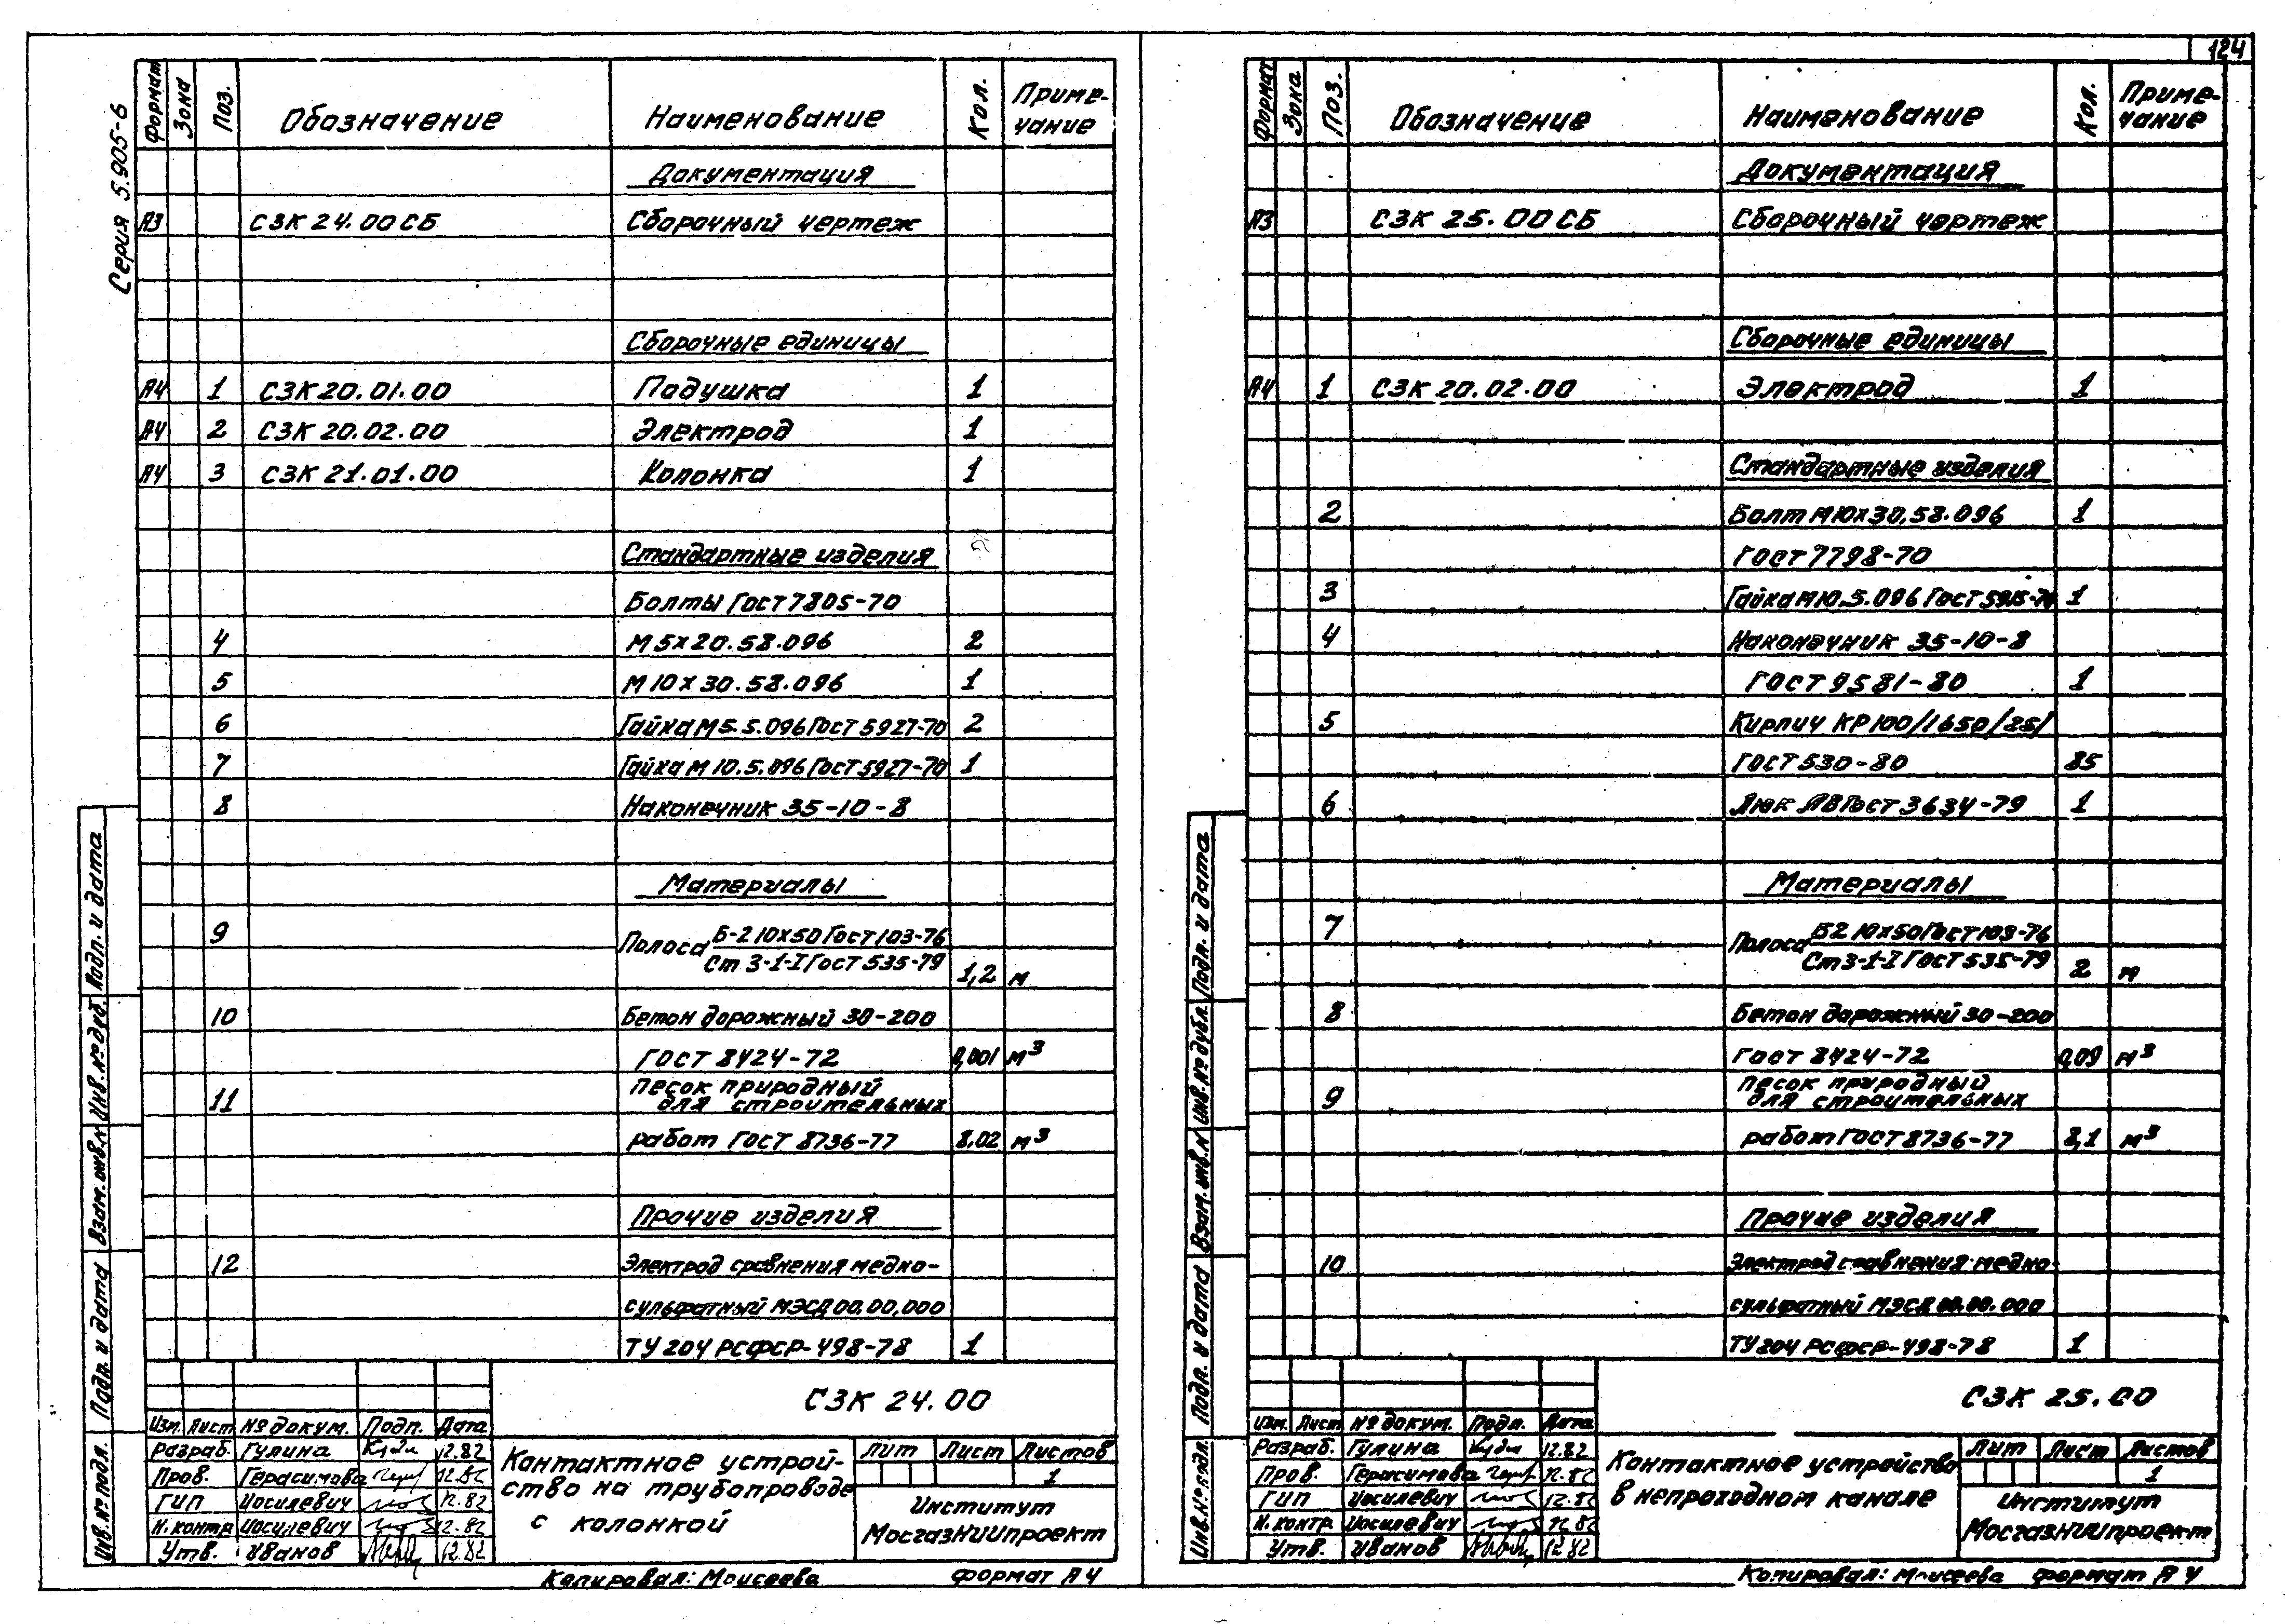 124
Серия 5.905-6
Формат Зона Поз. Обозначение Наименование Кол. Приме-
чание
Документация
А3 СЗК 24.00 СБ Сборочный чертеж
Сборочные единицы
А4 1 СЗК 20.01.00 Подушка 1
А4 2 СЗК 20.02.00 Электрод 1
А4 3 СЗК 21.01.00 Колонка 1
Стандартные изделия
Болты Гост 7805-70
4 М5х20.58.096 2
5 М10х30.58.096 1
6 Гайка М5.5.096 Гост 5927-70 2
7 Гайка М10.5.096 Гост 5927-70 1
8 Наконечник 35-10-8
Материалы
9 Полоса Б-2 10х50 Гост 103-76
Ст 3-1-I Гост 535-79 1,2 м
10 Бетон дорожный 30-200
ГОСТ 8424-72 0,001 м³
11 Песок природный
для строительных
работ ГОСТ 8736-77 м³
Прочие изделия
12 Электрод сравнения медно-
сульфатный МЭСД 00.00.000
ТУ 204 РСФСР-498-78 1
Подп. и дата
Инв. № дуб.
Взам. инв. №
Подп. и дата
Инв. № подл.
СЗК 24.00
Изм. Лист № докум. Подп. Дата
Разраб. Гулина 12.82
Пров. Герасимова 12.82
ГИП Иосилевич 12.82
Н. контр Иосилевич 12.82
Утв. Иванов 12.82
Контактное устрой-
ство на трубопроводе
с колонкой
Лит Лист Листов
1
Институт
МосгазНИИпроект
Копировал: Моисеева Формат А4
Формат Зона Поз. Обозначение Наименование Кол. Приме-
чание
Документация
А3 СЗК 25.00 СБ Сборочный чертеж
Сборочные единицы
А4 1 СЗК 20.02.00 Электрод 1
Стандартные изделия
2 Болт М10х30.58.096 1
Гост 7798-70
3 Гайка М10.5.096 Гост 5915-70 1
4 Наконечник 35-10-8
ГОСТ 9581-80 1
5 Кирпич КР100/1650/25/
ГОСТ 530-80 85
6 Люк Л В Гост 3634-79 1
Материалы
7 Полоса Б2 10х50 Гост 103-76
Ст3-1-I ГОСТ 535-79 2 м
8 Бетон дорожный 30-200
Гост 8424-72 0,09 м³
9 Песок природный
для строительных
работ ГОСТ 8736-77 м³
Прочие изделия
10 Электрод сравнения медно-
сульфатный МЭСД 00.00.000
ТУ 204 РСФСР-498-78 1
Подп. и дата
Инв. № дубл.
Взам. инв. №
Подп. и дата
Инв. № подл.
СЗК 25.00
Изм. Лист № докум. Подп. Дата
Разраб. Гулина 12.82
Пров. Герасимова 12.82
ГИП Иосилевич 12.82
Н. контр. Иосилевич 12.82
Утв. Иванов 12.82
Контактное устройство
в непроходном канале
Лит Лист Листов
1
Институт
МосгазНИИпроект
Копировал: Моисеева Формат А4